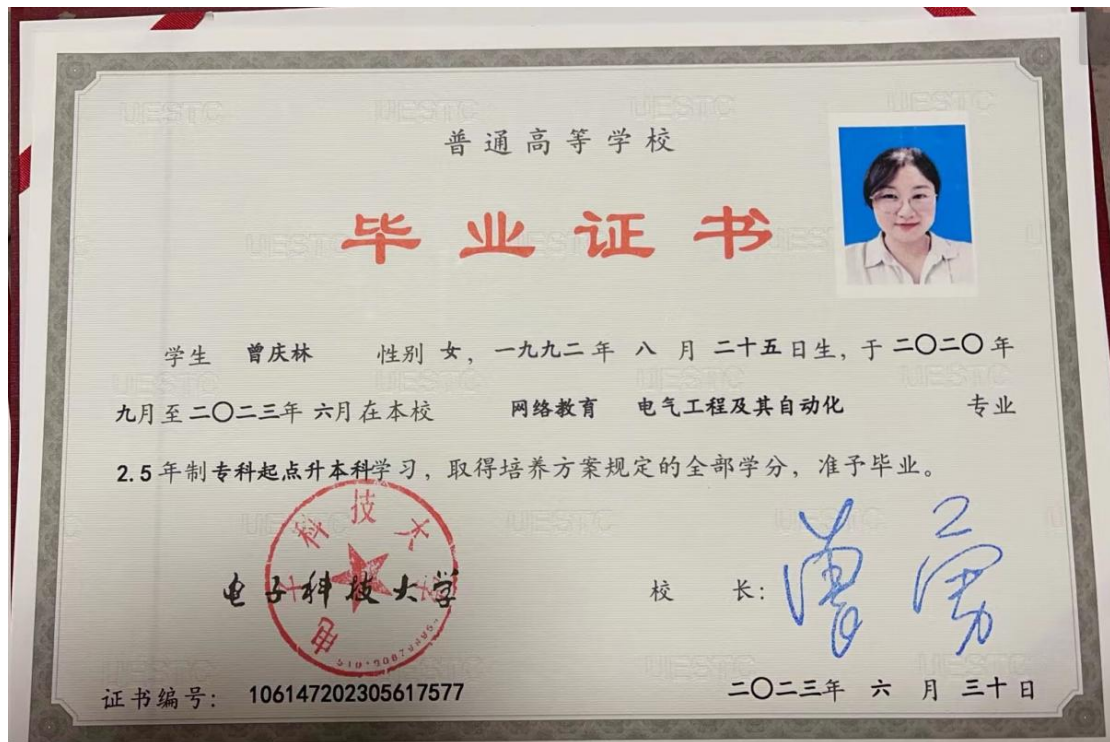 UESTC UESTC UESTC UESTC
普通高等学校
毕业证书
学生 曾庆林 性别 女，一九九二年 八 月 二十五日生，于二〇二〇年
九月至二〇二三年 六月在本校 网络教育 电气工程及其自动化 专业
2.5年制专科起点升本科学习，取得培养方案规定的全部学分，准予毕业。
电子科技大学
校 长：
证书编号： 106147202305617577
二〇二三年 六 月 三十日